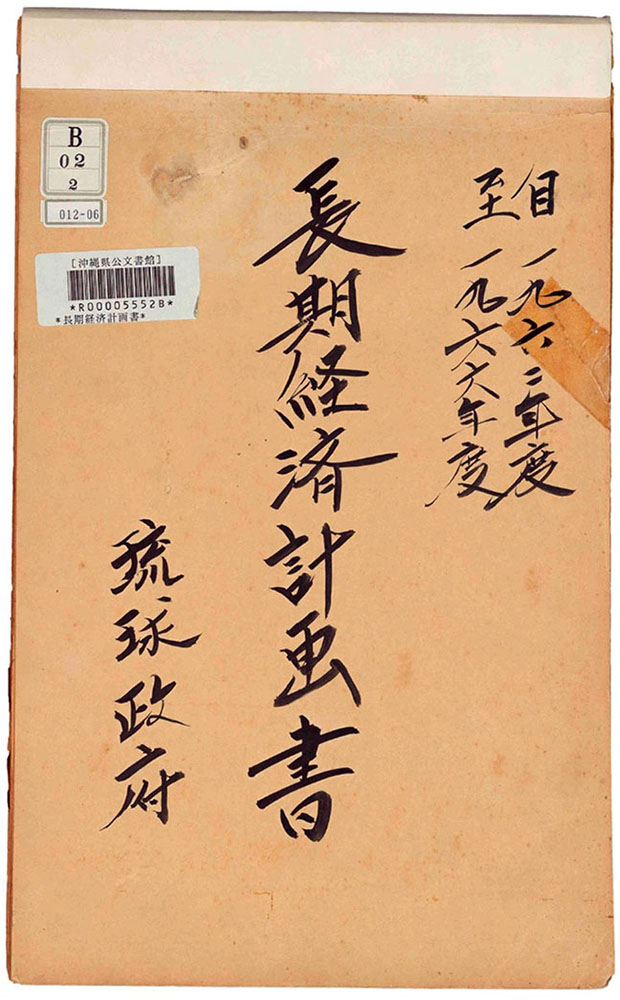 自 一九六二年度
至 一九六六年度
長期経済計画書
琉球政府
B
02
2
012-06
[沖縄県公文書館]
*R00005552B*
*長期経済計画書*